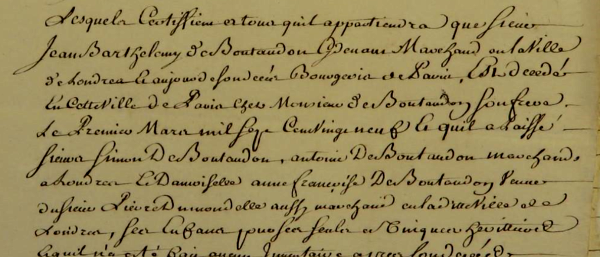 Lesquels Certiffient a tous quil appartiendra que Sieur
Jean Barthelemy De Boutaudon Cydevant Marchand en la Ville
de Londres Et aujourd de son deceds Bourgeois de Paris, Est decedé
En Cette Ville de Paris Chez Monsieur De Boutaudon son frere
Le Premier Mars mil Sept Cens Vingt neuf Et quil a laissé
Sieurs Simon De Boutaudon, antoine De Boutaudon marchands
a Londres Et Damoiselle anne françoise De Boutaudon Veuve
du Sieur Pierre Dumondelle aussy marchand en lad Ville de
Londres, ses Enfans pour ses seuls et Uniques heritiers
Et quil n'a été fait aucun Inventaire apres son deceds